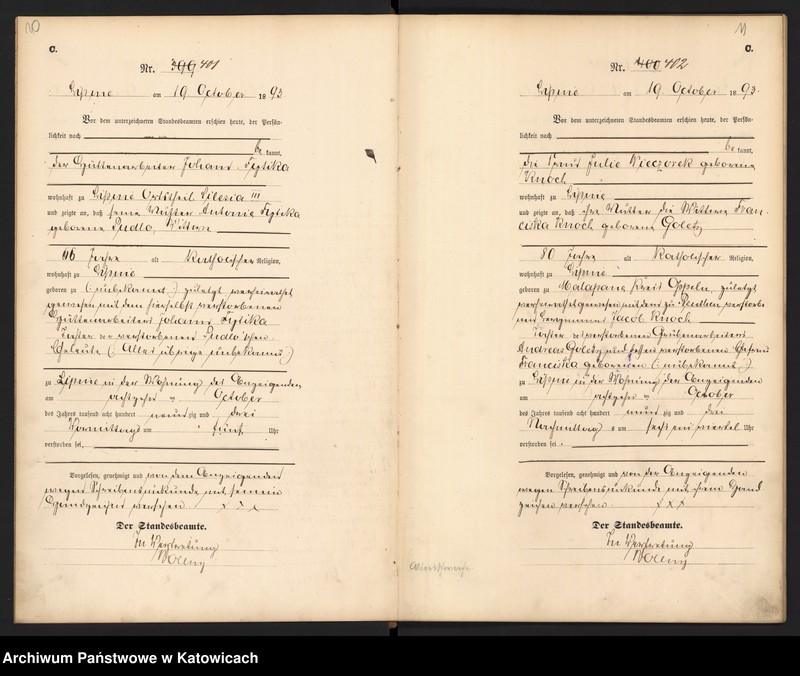 10
C.
Nr. 399 401
Lipine am 19 October 1893
Vor dem unterzeichneten Standesbeamten erschien heute, der Persön-
lichkeit nach
be kannt,
der Hüttenarbeiter Johann
wohnhaft zu Lipine Ortstheil Silesia III
und zeigte an, daß seine Mutter Antonie
geborene Pudlo, Wittwe
46 Jahre alt Katholischer Religion,
wohnhaft zu Lipine
geboren zu (unbekannt) zuletzt verheirathet
gewesen mit dem hierselbst verstorbenen
Hüttenarbeiter Johann
Tochter der verstorbenen Pudlo'schen
Eheleute (Alles übrige unbekannt)
zu Lipine in der Wohnung des Anzeigenden
am achtzehn ten October
des Jahres tausend acht hundert neun zig und drei
Vormittags um fünf Uhr
verstorben sei.
Vorgelesen, genehmigt und von dem Anzeigenden
wegen Schreibensunkunde mit seinem
Handzeichen versehen x x x
Der Standesbeamte.
In Vertretung
11
C.
Nr. 400 402
Lipine am 19. October 1893.
Vor dem unterzeichneten Standesbeamten erschien heute, der Persön-
lichkeit nach
be kannt,
die Frau Julie Wieczorek geborene
Knoch
wohnhaft zu Lipine
und zeigte an, daß ihre Mutter die Wittwe Fran-
ciska Knoch geborene Goletz
80 Jahre alt Katholischer Religion,
wohnhaft zu Lipine
geboren zu Malapane Kreis Oppeln, zuletzt
verheirathet gewesen mit dem zu Beuthen verstorbe-
nen Bergmann Jacob Knoch
Tochter des verstorbenen Grubenarbeiters
Andreas Goletz und dessen verstorbenen Ehefrau
Franciska geborenen (unbekannt)
zu Lipine in der Wohnung der Anzeigenden
am achtzehn ten October
des Jahres tausend acht hundert neun zig und drei
Nachmittags um sechs ein viertel Uhr
verstorben sei.
Vorgelesen, genehmigt und von der Anzeigenden
wegen Schreibensunkunde mit ihrem Hand-
zeichen versehen. x x x
Der Standesbeamte.
In Vertretung
Archiwum Państwowe w Katowicach